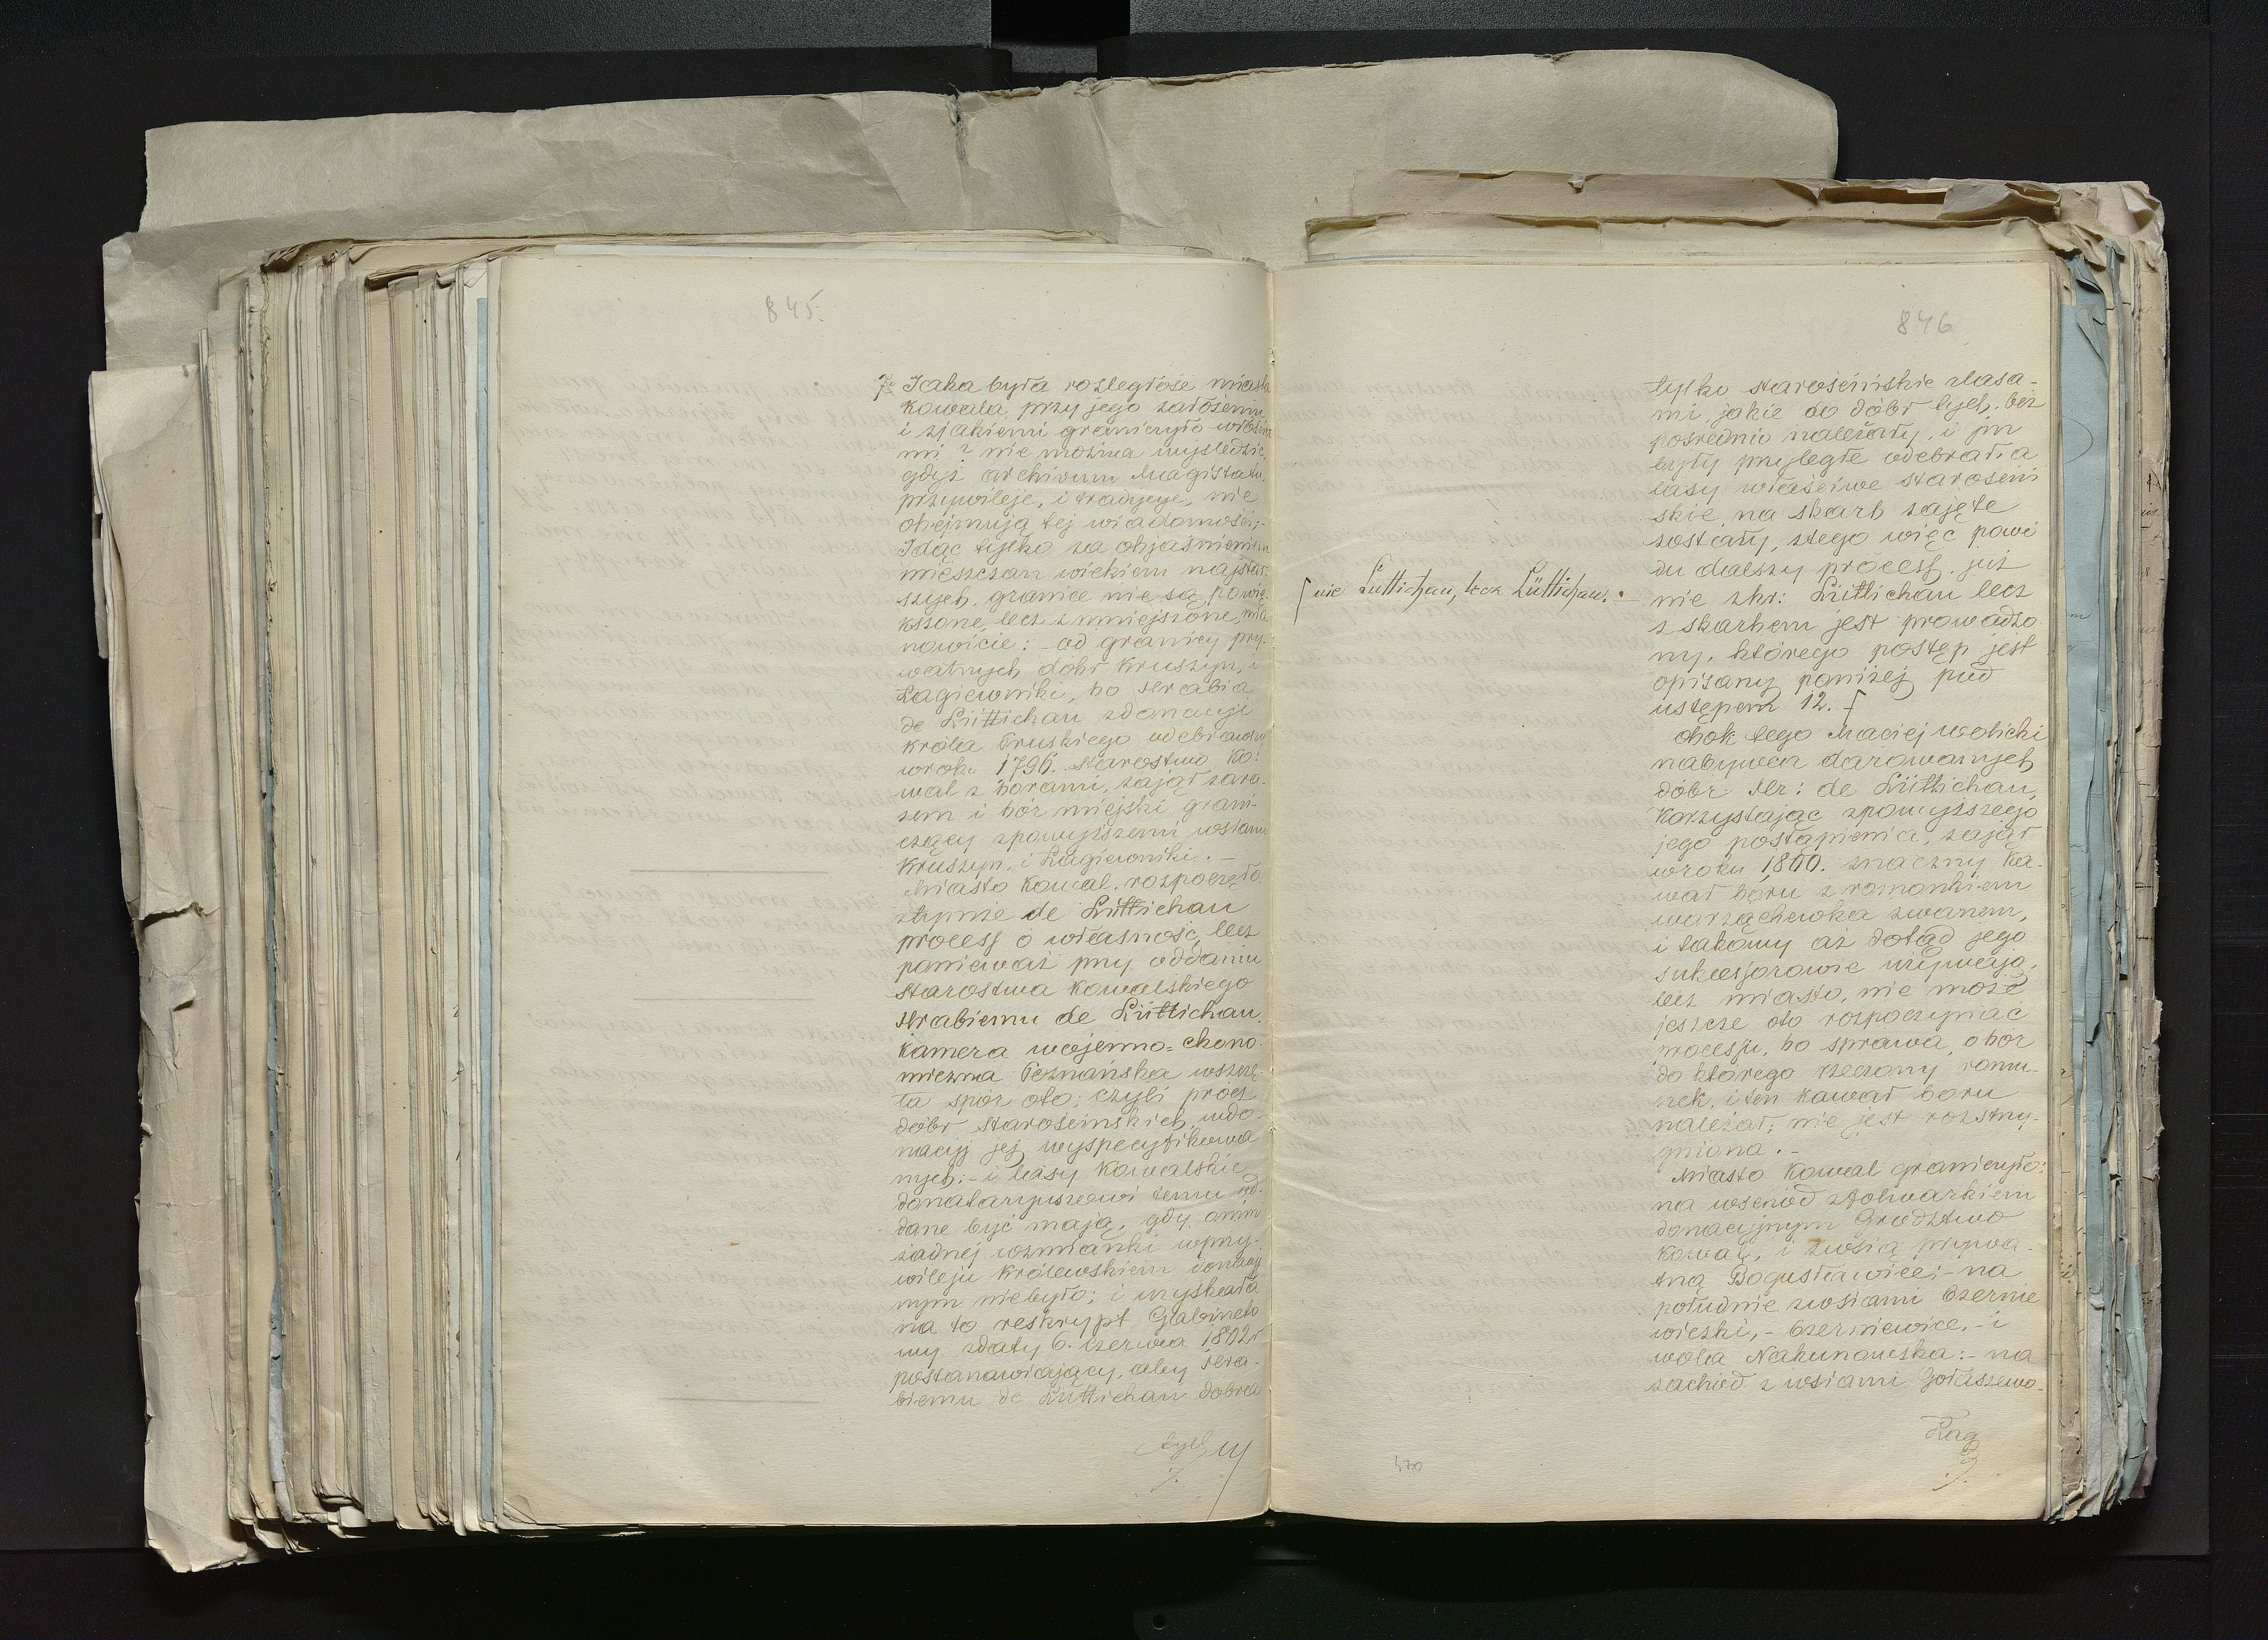 845.
7e Jaka była rozległość miasta
Kowala, przy jego założeniu
i z jakiemi graniczyło włościa
mi? nie można wyśledzić,
gdyż archivum Magistatu,
przywileje, i tradycye, nie
obejmują tej wiadomości;-
Idąc tylko za objaśnieniem
mieszczan wiekiem najstar-
szych, granice nie są powię-
kszone, lecz zmniejszone, mia
nowicie: - od granicy pry-
watnych dóbr Kruszyn, i
Łagiewniki, bo Hrabia
de Lüttichau z donacyi
Króla Pruskiego odebrawszy
w rok. 1796. Starostwo Ko-
wal z borami, zajął zara-
zem i bór miejski grani-
czący z powyższemi wsiami
Kruszyn, i Łagiewniki. -
Miasto Kowal, rozpoczęło
z tymże de Lüttichau
process o własność, lecz
ponieważ przy oddaniu
Starostwa Kowalskiego
Hrabiemu de Lüttichau,
Kamera wojenno=ekono-
miczna Poznańska wszczę-
ła spór oto; czyli prócz
dóbr Starościńskich, w do-
nacyi jej wyspecyfikowa
nych: - i lasy Kowalskie
donataryuszowi temu od-
dane być mają, gdy o nim
żadnej wzmianki w przy-
wileju Królewskiem donacyj
nym niebyło; i uzyskała
na to reskrypt Gabineto
wy z daty 6. Czerwca 1802 r
postanawiający, aby Hra-
biemu de Lüttichau dobra
tych
846
tylko starościńskie z lasa-
mi, jakie do dóbr tych, bez
pośrednio należały, i przy
były przyległe odebrała
lasy właściwe starościń
skie, na skarb zajęte
zostały, z tego więc powo
du dalszy process, już
nie z hr: Lüttichau lecz
z skarbem jest prowadzo
ny, którego postęp jest
opisany poniżej pod
ustępem 12. ſ
ſ nie Luttichau, lecz Lüttichau. -
obok tego Maciej Wolicki
nabywca darowanych
dóbr Hr: de Lüttichau,
Korzystając z powyższego
jego postąpienia, zajął
w roku 1800. znaczny ka-
wał boru z romonkiem
warząchewka zwanem,
i takowy aż dotąd jego
sukcessorowie używają,
lecz miasto, nie może
jeszcze oto rozpoczynać
processu, bo sprawa, o bór
do którego rzeczony romu-
nek, i ten kawał boru
należał, nie jest rozstrzy-
gniona. -
Miasto Kowal graniczyło:
na wschód z folwarkiem
donacyjnym Grodztwo
Kowal, i z wsią prywa-
tną Bogusławice; - na
południe z wsiami Czernie
wiczki, - Czerniewice, - i
wola Nakunowska: - na
zachód z wsiami Gołaszewo
Łag
470